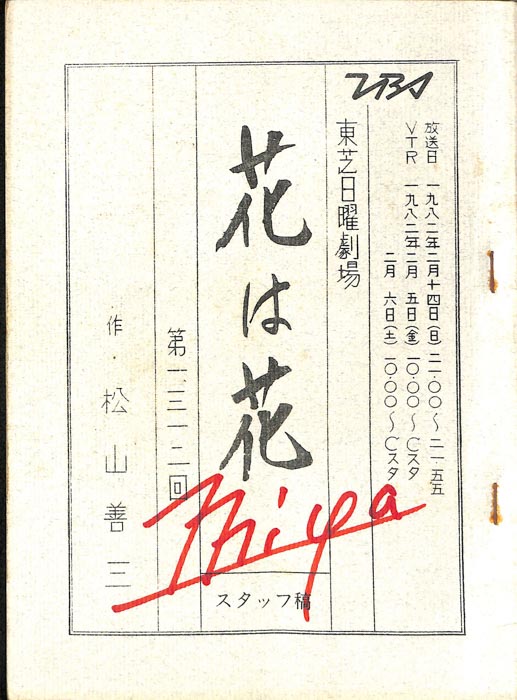 TBS
放送日 一九八二年二月十四日(日) 二一.〇〇〜二一.五五
VTR 一九八二年二月 五日(金) 一〇.〇〇〜Cスタ
二月 六日(土) 一〇.〇〇〜Cスタ
東芝日曜劇場
花は花
スタッフ稿
第一、三一二回
作・松山善三